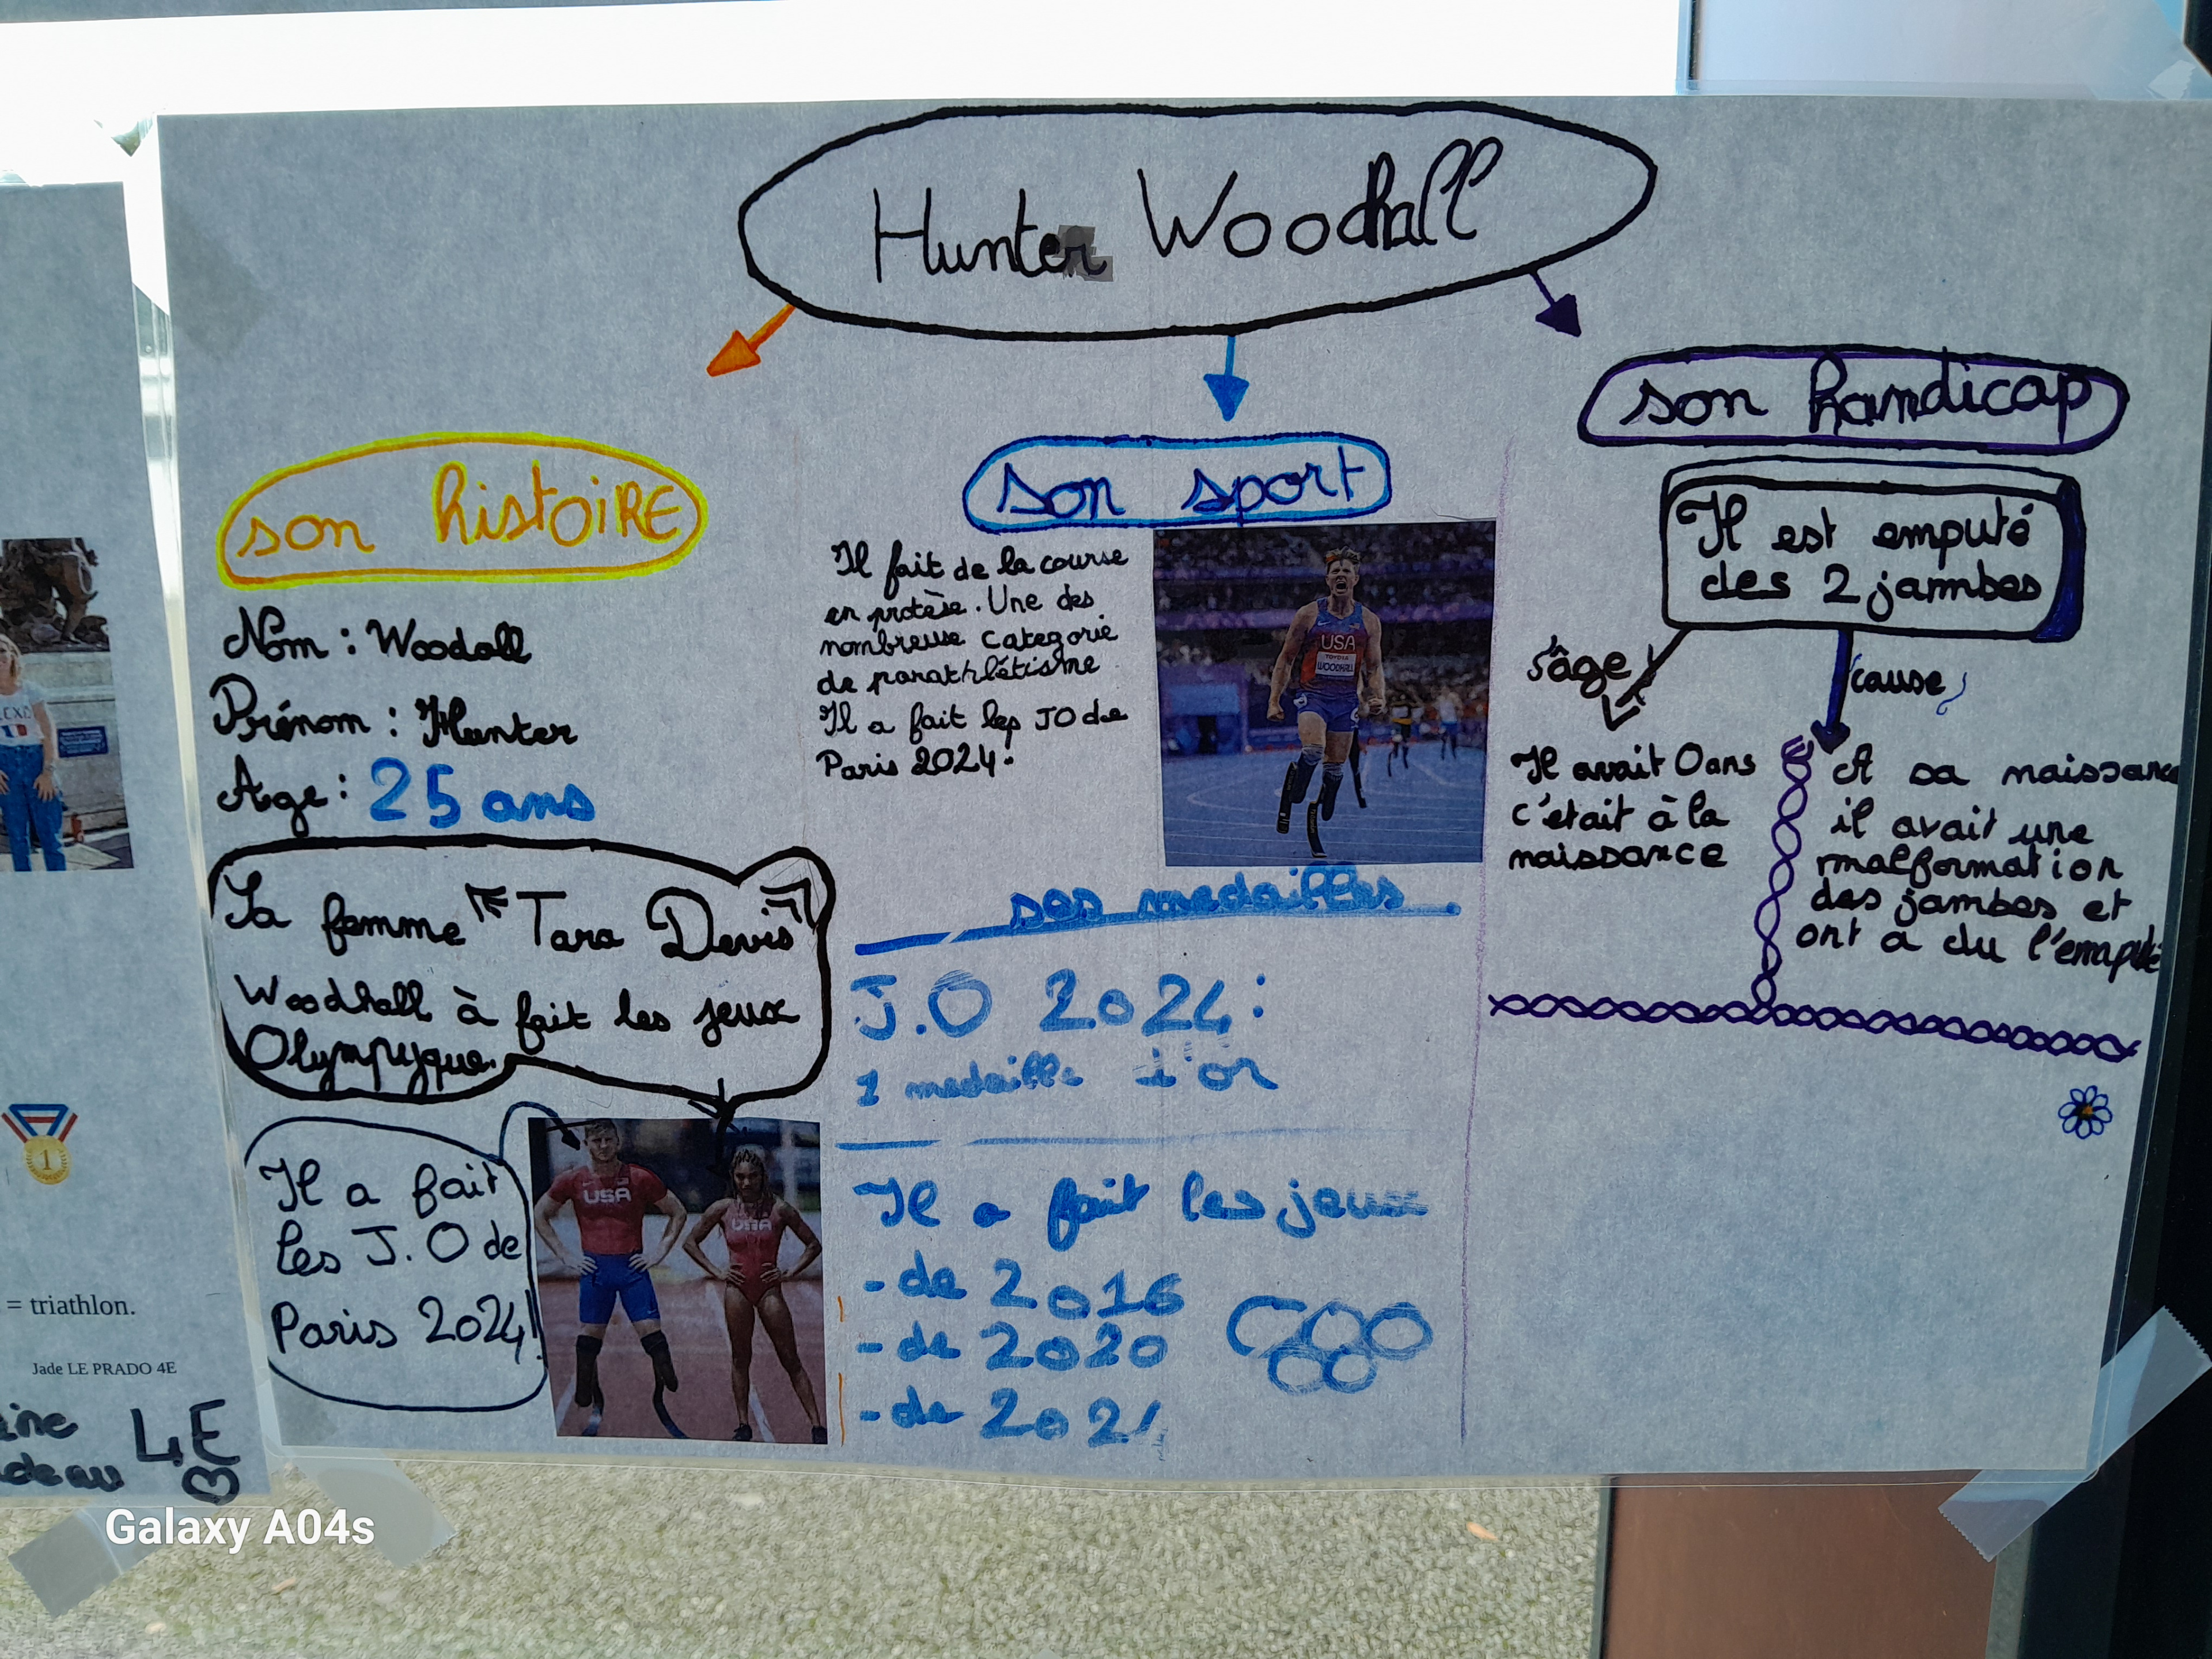 Hunter Woodhall
son histoiRE
Nom : Woodall
Prénom : Hunter
Age : 25 ans
Sa femme "Tara Davis"
Woodhall à fait les jeux
Olympyque.
Il a fait
les J.O de
Paris 2024!
USA
USA
son sport
Il fait de la course
en protèse. Une des
nombreuse categorie
de parathlétisme
Il a fait les JO de
Paris 2024.
USA
TOYOTA
WOODHALL
ses medailles
J.O 2024:
1 medaille d'or
Il a fait les jeux
- de 2016
- de 2020
- de 2024
son handicap
Il est emputé
des 2 jambes
s'âge
Il avait 0 ans
c'était à la
naissance
cause
A sa naissance
il avait une
malformation
des jambes et
ont a du l'emputé
= triathlon.
Jade LE PRADO 4E
4E
Galaxy A04s